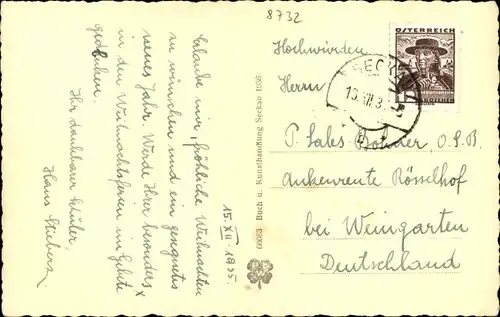 8732
Erlaube mir, fröhliche Weihnachten
zu wünschen und ein gesegnetes
neues Jahr. Werde Ihrer besonders
in den Weihnachtsferien im Gebete
gedenken.
Ihr dankbarer Schüler!
Hans
15. XII. 1935.
60683 Buch u. Kunsthandlung Seckau
ÖSTERREICH
SECKAU
Hochwürden
Herrn
P. Sales O.S.B.
ankenreute Rösselhof
bei Weingarten
Deutschland